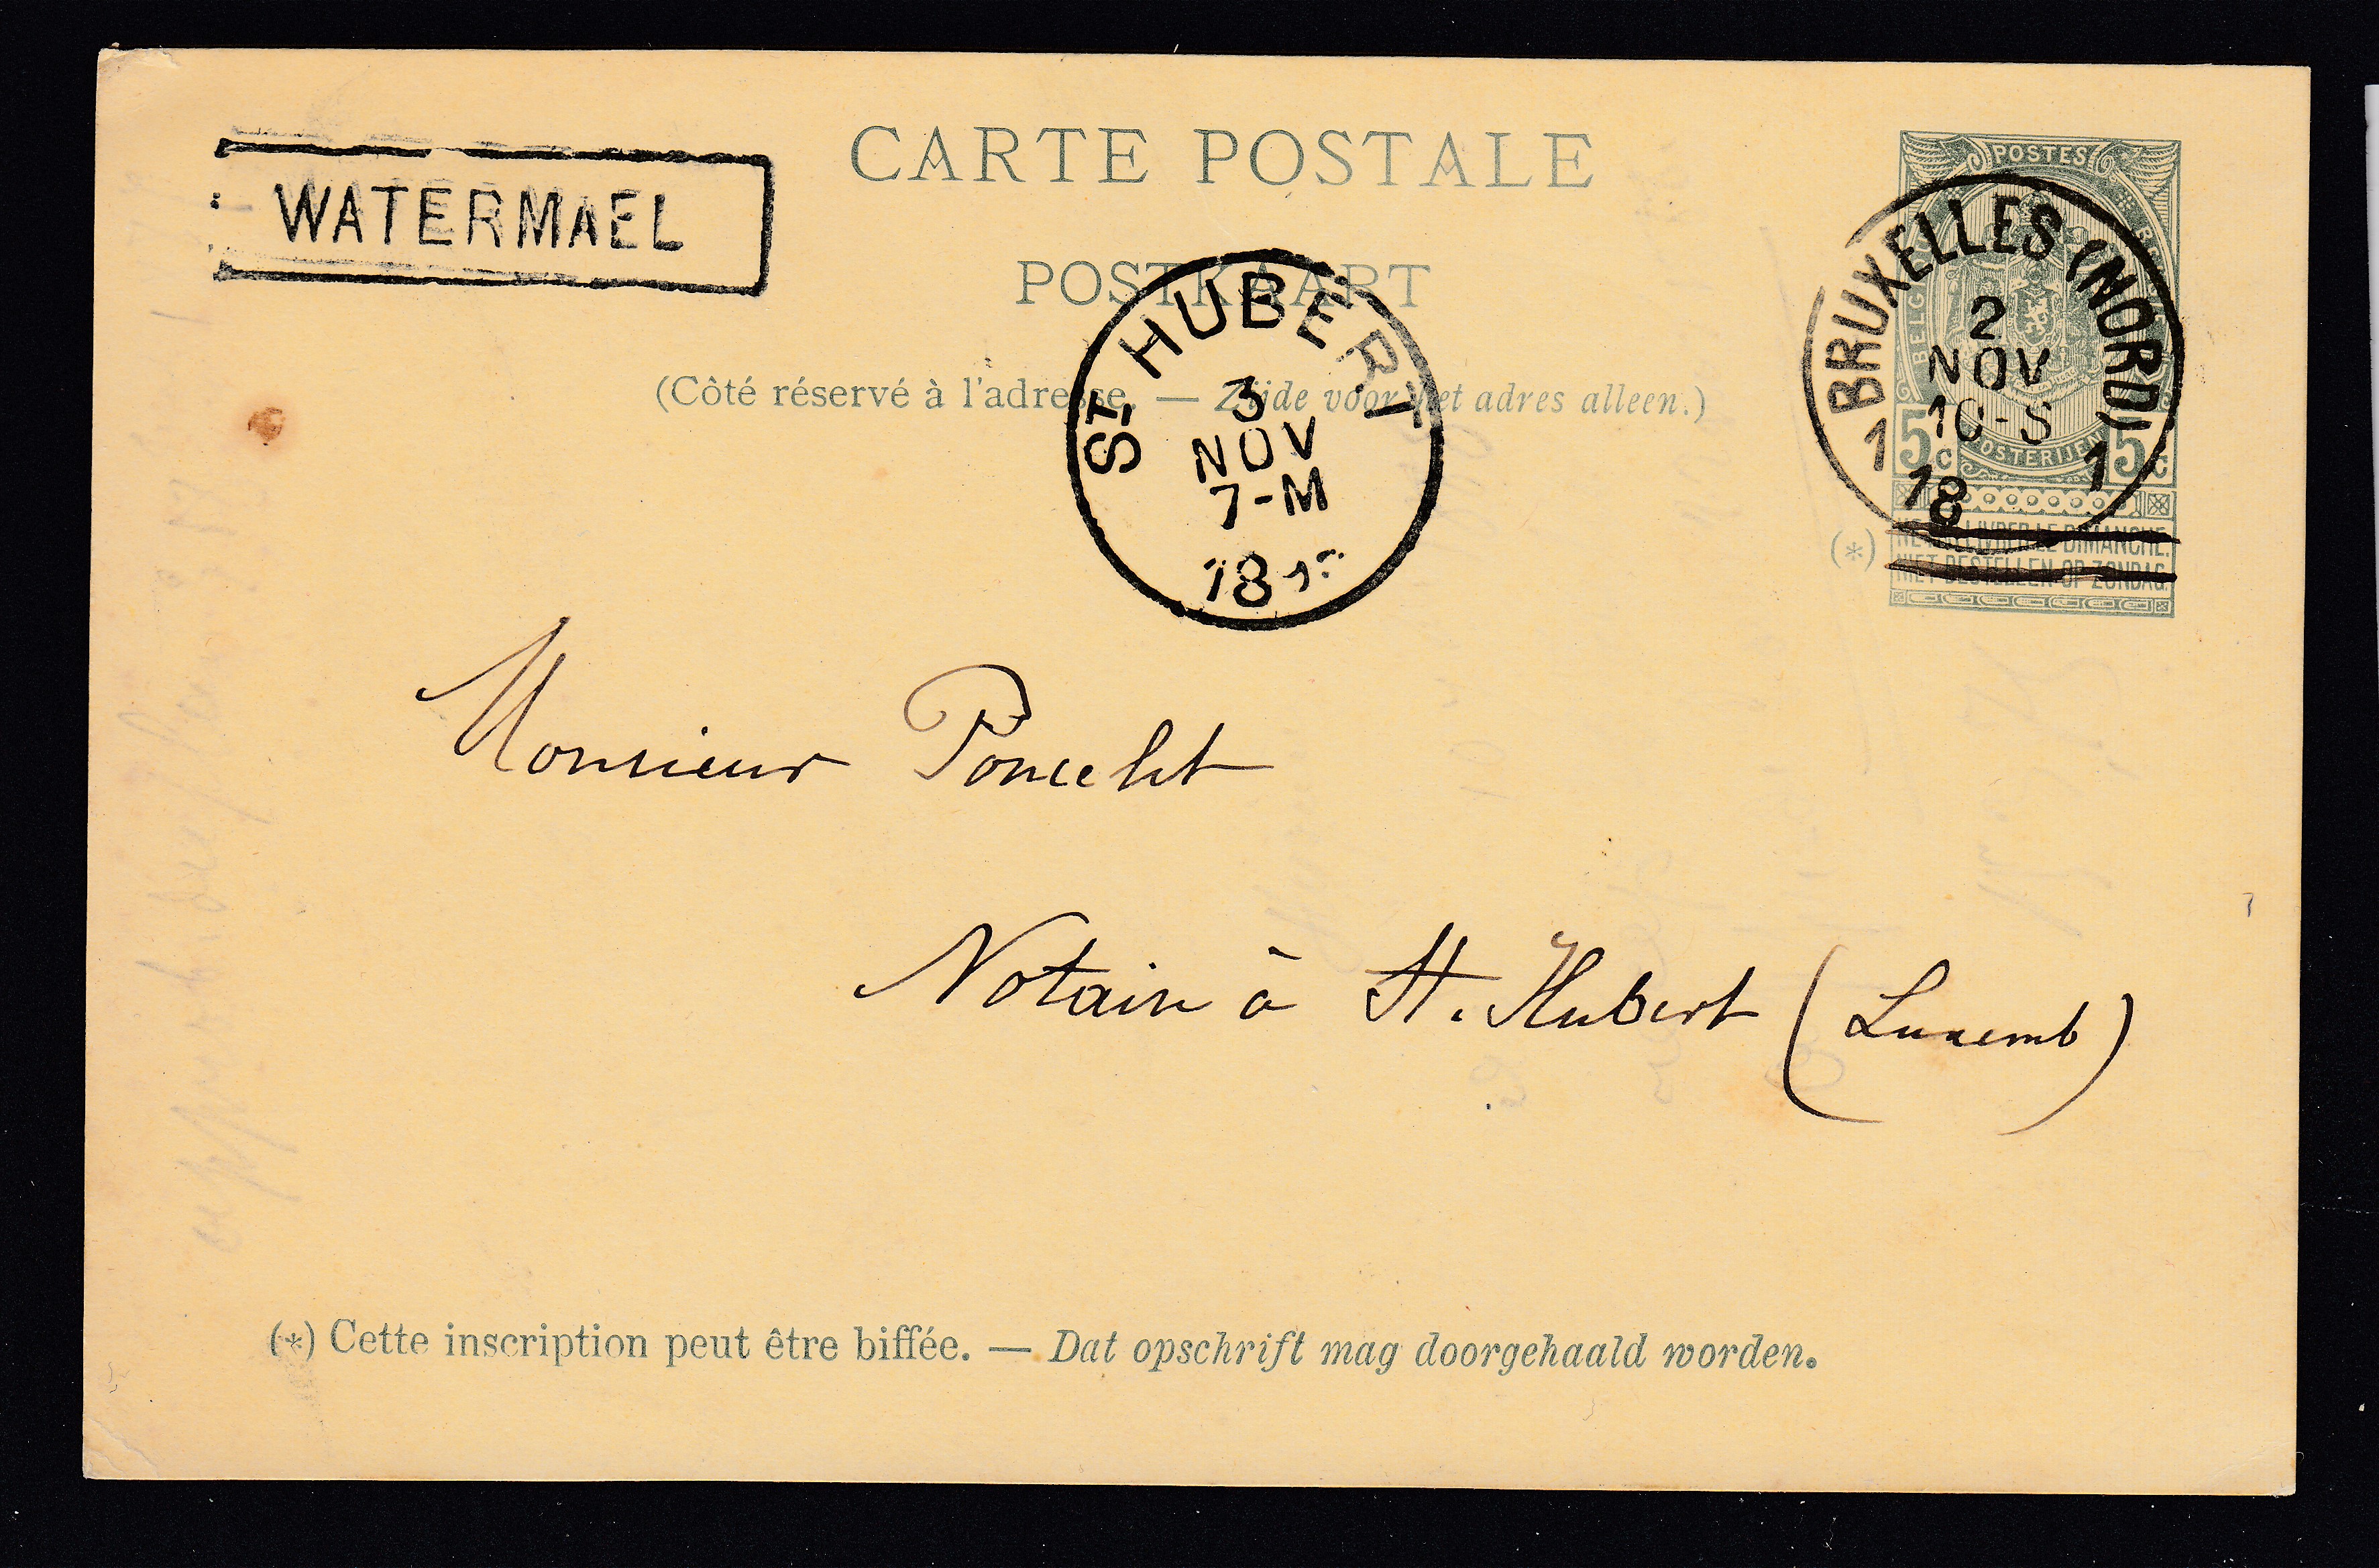 WATERMAEL
CARTE POSTALE
POSTKAART
(Côté réservé à l'adresse. — Zijde voor het adres alleen.)
POSTES
BELG
5c POSTERIJEN 5c
(*)
NE PAS LIVRER LE DIMANCHE.
NIET BESTELLEN OP ZONDAG.
BRUXELLES (NORD)
2
NOV
10-S
1 1
18
ST HUBERT
3
NOV
7-M
18
Monsieur Poncelet
Notaire à St. Hubert (Luxemb)
(*) Cette inscription peut être biffée. — Dat opschrift mag doorgehaald worden.